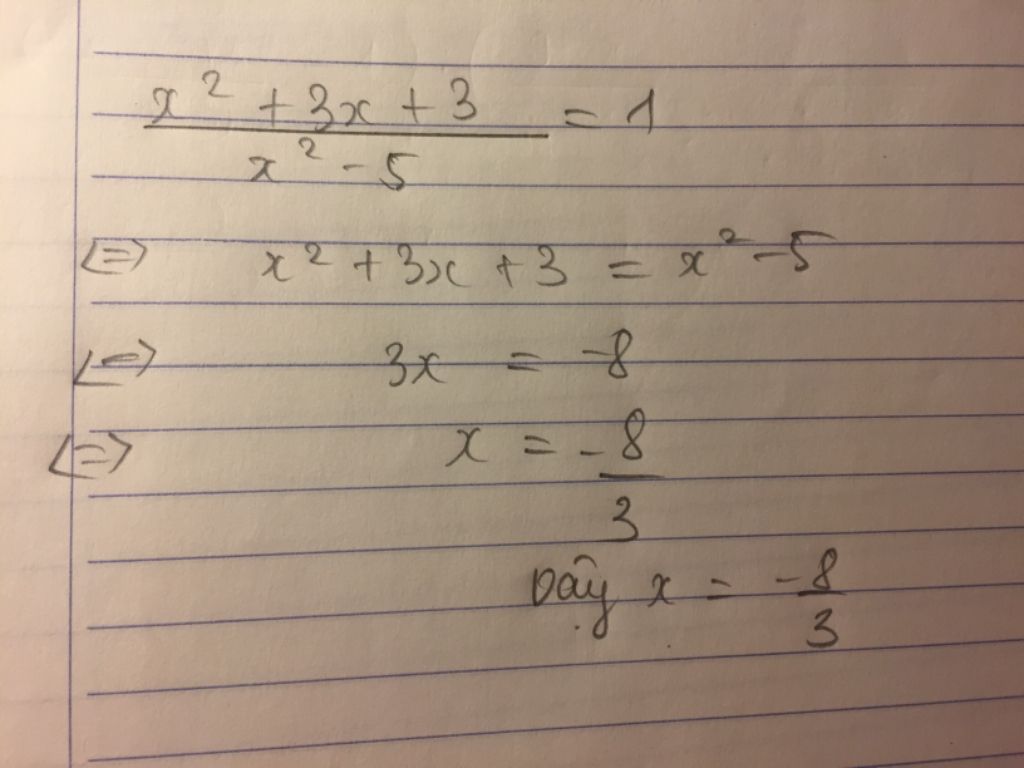 x² + 3x + 3 = 1
x² - 5
<=> x² + 3x + 3 = x² - 5
<=> 3x = -8
<=> x = -8
3
Vậy x = -8
3